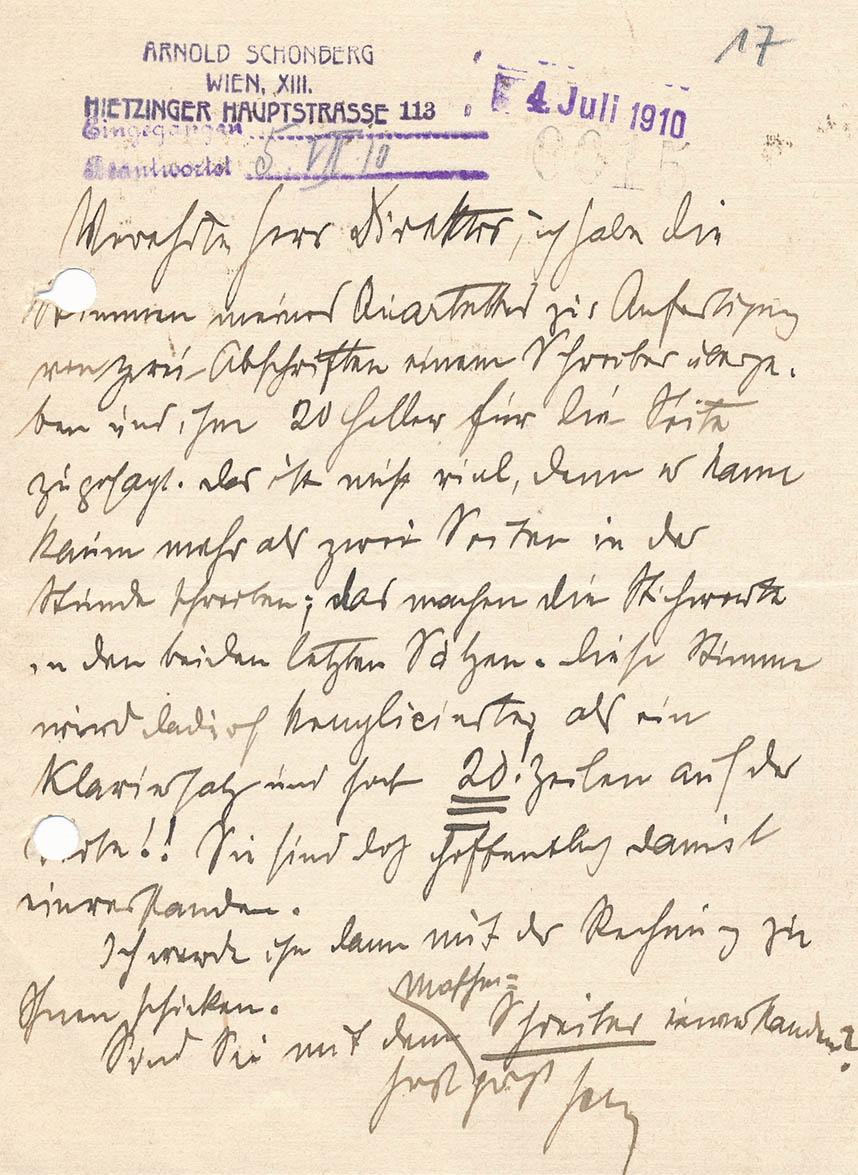 17
ARNOLD SCHÖNBERG
WIEN, XIII.
HIETZINGER HAUPTSTRASSE 113
4. Juli 1910
Eingegangen
Beantwortet 5 VII 10
Verehrter Herr Direktor, ich habe die
Stimmen meines Quartettes zur Anfertigung
von zwei Abschriften einem Schreiber überge-
ben und ihm 20 Heller für die Seite
zugesagt. Das ist nicht viel, denn er kann
kaum mehr als zwei Seiten in der
Stunde schreiben; das machen die Stichworte
in den beiden letzten Sätzen. Diese Stimme
wird dadurch komplicierter, als ein
Klaviersatz und hat 20! Zeilen auf der
Seite!! Sie sind doch hoffentlich damit
einverstanden.
Ich werde ihn dann mit der Rechnung zu
Ihnen schicken.
Sind Sie mit dem Schreiber einverstanden?